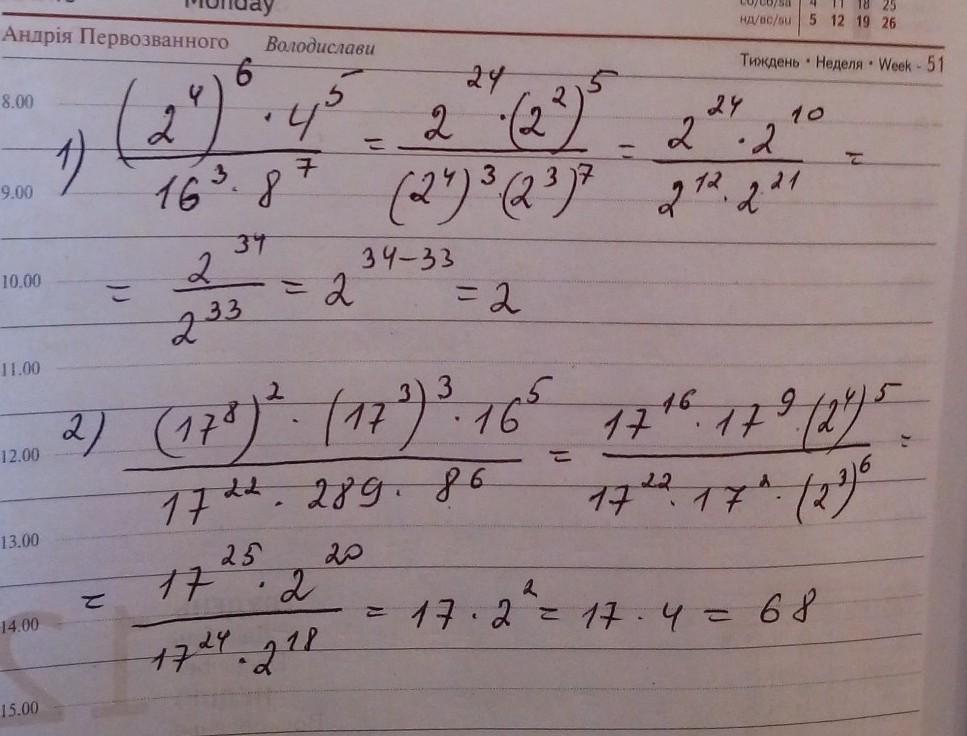 Monday
со/сб/sa 4 11 18 25
нд/вс/su 5 12 19 26
Андрія Первозванного Володислави
Тиждень • Неделя • Week - 51
8.00
1) \frac{(2^4)^6 \cdot 4^5}{16^3 \cdot 8^7} = \frac{2^{24} \cdot (2^2)^5}{(2^4)^3 \cdot (2^3)^7} = \frac{2^{24} \cdot 2^{10}}{2^{12} \cdot 2^{21}} =
9.00
10.00
= \frac{2^{34}}{2^{33}} = 2^{34-33} = 2
11.00
2) \frac{(17^8)^2 \cdot (17^3)^3 \cdot 16^5}{17^{22} \cdot 289 \cdot 8^6} = \frac{17^{16} \cdot 17^9 \cdot (2^4)^5}{17^{22} \cdot 17^2 \cdot (2^3)^6} =
12.00
13.00
= \frac{17^{25} \cdot 2^{20}}{17^{24} \cdot 2^{18}} = 17 \cdot 2^2 = 17 \cdot 4 = 68
14.00
15.00